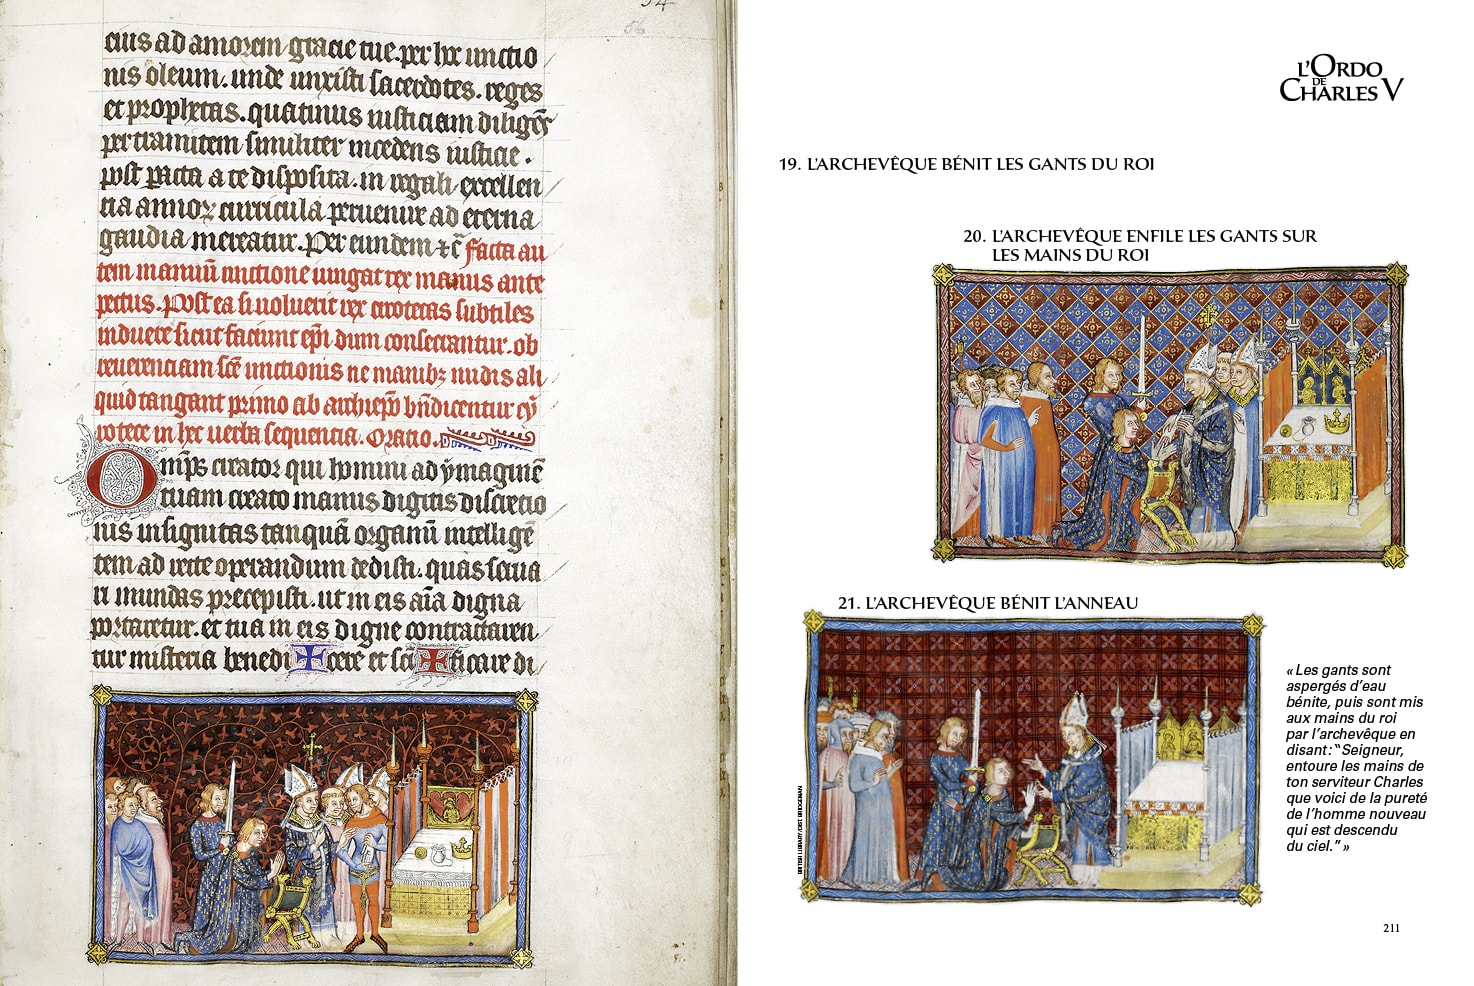 cius ad amorem gracie tue. per hec unctio
nis oleum. unde unxisti sacerdotes. reges
et prophetas. quatinus iusticiam
per tramitem similiter incedens iusticie.
post pacta a te disposita. in regali excellen
tia annoꝝ curricula peruenire ad eterna
gaudia mereatur. Per eundem ⁊c̄ Facta au
tem manuū unctione iungat rex manus ante
pectus. Post ea si uoluerit rex cirotecas subtiles
induere sicut faciunt ep̄i dum consecrantur. ob
reuerenciam sc̄e unctionis ne manibꝫ nudis ali
quid tangant primo ab archiep̄o bn̄dicentur cy
rotece in hec uerba sequentia. Oratio.
Omp̄s creator qui homini ad ymaginē
tuam creato manus digitis discretio
nis insignitas tanquā organū intelligē
tem ad recte operandum dedisti. quas serua
ri mundas precepisti. ut in eis aīa digna
portaretur. et tua in eis digne contractaren
tur misteria benedi✠cere et sc̄ā✠ficare di
56
L'ORDO
DE
CHARLES V
19. L'ARCHEVÊQUE BÉNIT LES GANTS DU ROI
20. L'ARCHEVÊQUE ENFILE LES GANTS SUR
LES MAINS DU ROI
21. L'ARCHEVÊQUE BÉNIT L'ANNEAU
« Les gants sont
aspergés d'eau
bénite, puis sont mis
aux mains du roi
par l'archevêque en
disant : “Seigneur,
entoure les mains de
ton serviteur Charles
que voici de la pureté
de l'homme nouveau
qui est descendu
du ciel.” »
BRITISH LIBRARY/DIST. BRIDGEMAN
211